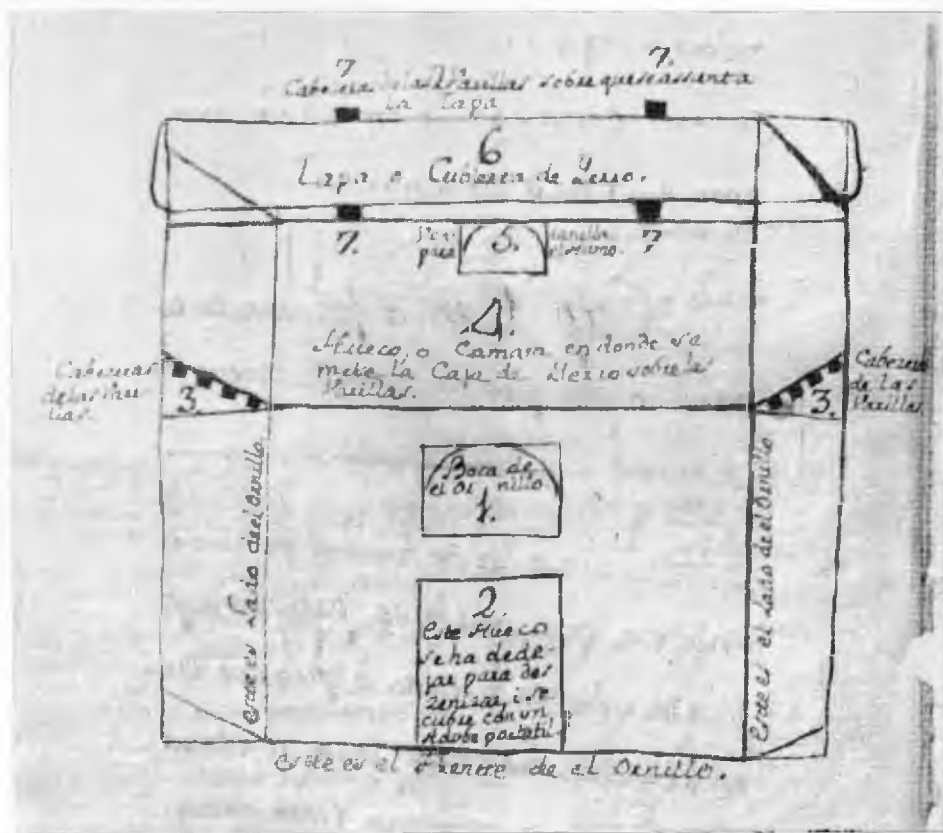 7 7.
Cabezeras de las Parillas sobre que se assienta
la Tapa
6
Tapa o Cubierta de Yerro.
7. 5. 7
para el Humo.
4.
Hueco, o Camara en donde se
mete la Caja de Yerro sobre las
Parillas.
Cabezeras
de las Pari-
llas.
3.
Cabezeras
de las
Parillas
3.
Boca de
el Ornillo
1.
2.
Este Hueco
se ha de de-
jar para des
Zenizar, i se
cubre con un
Adobe portatil
Este es el Lado de el Ornillo
Este es el Lado de el Ornillo
Este es el Frente de el Ornillo.